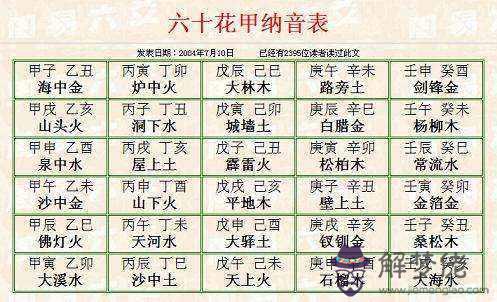 六十花甲纳音表
发表日期：2004年7月10日 已经有2395位读者读过此文
甲子 乙丑 丙寅 丁卯 戊辰 己巳 庚午 辛未 壬申 癸酉
海中金 炉中火 大林木 路旁土 剑锋金
甲戌 乙亥 丙子 丁丑 戊寅 己卯 庚辰 辛巳 壬午 癸未
山头火 涧下水 城墙土 白腊金 杨柳木
甲申 乙酉 丙戌 丁亥 戊子 己丑 庚寅 辛卯 壬辰 癸巳
泉中水 屋上土 霹雷火 松柏木 常流水
甲午 乙未 丙申 丁酉 戊戌 己亥 庚子 辛丑 壬寅 癸卯
沙中金 山下火 平地木 壁上土 金箔金
甲辰 乙巳 丙午 丁未 戊申 己酉 庚戌 辛亥 壬子 癸丑
佛灯火 天河水 大驿土 钗钏金 桑松木
甲寅 乙卯 丙辰 丁巳 戊午 己未 庚申
大溪水 沙中土 天上火 石榴木 大海水
解梦佬